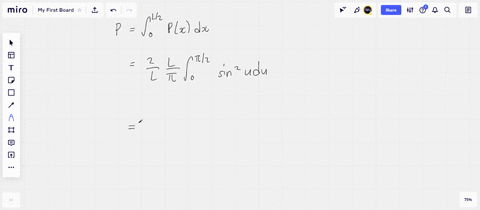 miro
My First Board
Share
P = ∫₀^{L/2} P(x) dx
= 2/L L/π ∫₀^{π/2} sin² u du
=
75%